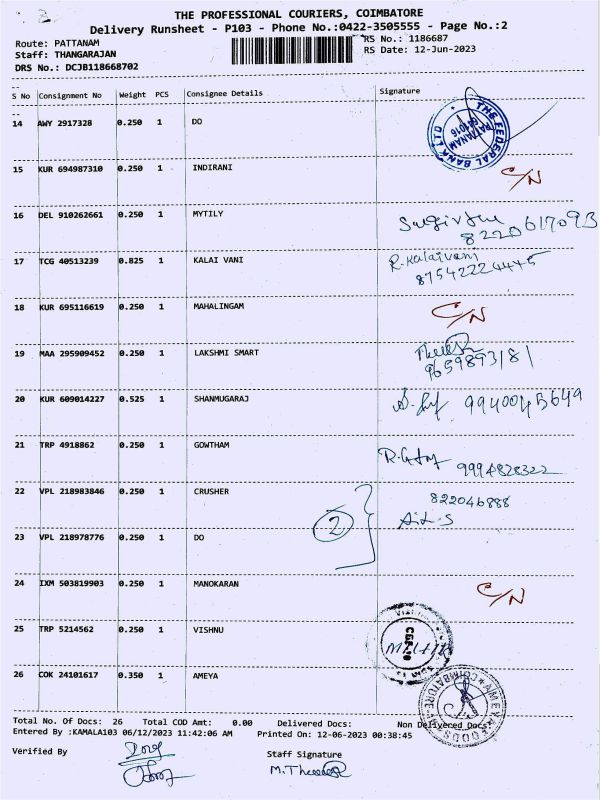 THE PROFESSIONAL COURIERS, COIMBATORE
Delivery Runsheet - P103 - Phone No.:0422-3505555 - Page No.:2
Route: PATTANAM RS No.: 1186687
Staff: THANGARAJAN RS Date: 12-Jun-2023
DRS No.: DCJB118668702
S No Consignment No Weight PCS Consignee Details Signature
14 AWY 2917328 0.250 1 DO
THE FEDERAL BANK LTD PATTANAM 641016
15 KUR 694987310 0.250 1 INDIRANI C/N
16 DEL 910262661 0.250 1 MYTILY
17 TCG 40513239 0.825 1 KALAI VANI R.Kalaivani
87542224475
18 KUR 695116619 0.250 1 MAHALINGAM C/N
19 MAA 295909452 0.250 1 LAKSHMI SMART
9659893181
20 KUR 609014227 0.525 1 SHANMUGARAJ
21 TRP 4918862 0.250 1 GOWTHAM
9994828322
22 VPL 218983846 0.250 1 CRUSHER 822046888
2
23 VPL 218978776 0.250 1 DO
24 IXM 503819903 0.250 1 MANOKARAN C/N
25 TRP 5214562 0.250 1 VISHNU
26 COK 24101617 0.350 1 AMEYA
AMEYA FOODS COIMBATORE
Total No. Of Docs: 26 Total COD Amt: 0.00 Delivered Docs: Non Delivered Docs:
Entered By :KAMALA103 06/12/2023 11:42:06 AM Printed On: 12-06-2023 00:38:45
Verified By Staff Signature